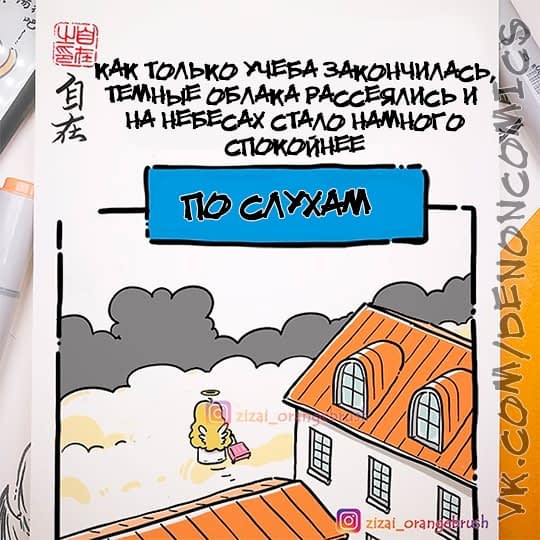 自在
КАК ТОЛЬКО УЧЕБА ЗАКОНЧИЛАСЬ,
ТЕМНЫЕ ОБЛАКА РАССЕЯЛИСЬ И
НА НЕБЕСАХ СТАЛО НАМНОГО
СПОКОЙНЕЕ
ПО СЛУХАМ
zizai_orangebrush
zizai_orangebrush
VK.COM/DENONCOMICS